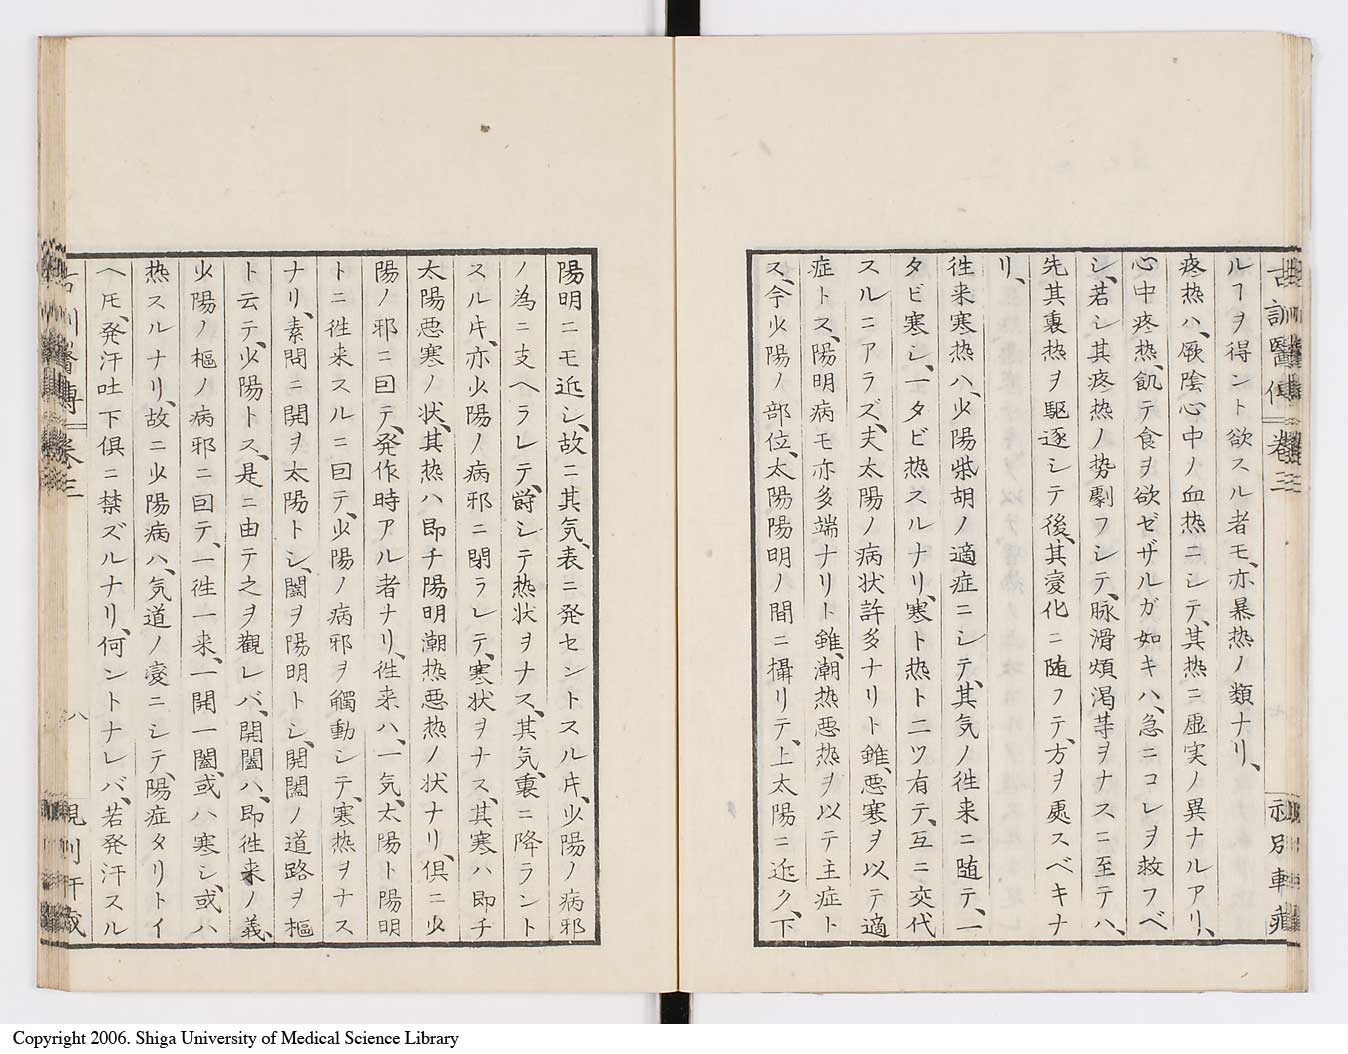 古訓醫傳 卷三
ルヿヲ得ント欲スル者モ、亦暴热ノ類ナリ、
疼热ハ、厥陰心中ノ血热ニシテ、其热ニ虚実ノ異ナルアリ、
心中疼热、飢テ食ヲ欲ゼザルガ如キハ、急ニコレヲ救フベ
シ、若シ其疼热ノ势劇フシテ、脉滑煩渇䓁ヲナスニ至テハ、
先其裏热ヲ駆逐シテ後、其変化ニ随フテ、方ヲ處スベキナ
リ、
徃来寒热ハ、少陽柴胡ノ適症ニシテ、其気ノ徃来ニ随テ、一
タビ寒シ、一タビ热スルナリ、寒ト热ト二ツ有テ、互ニ交代
スルニアラズ、夫太陽ノ病状許多ナリト雖、悪寒ヲ以テ適
症トス、陽明病モ亦多端ナリト雖、潮热悪热ヲ以テ主症ト
ス、今少陽ノ部位、太陽陽明ノ間ニ攝リテ、上太陽ニ近ク、下
陽明ニモ近シ、故ニ其気、表ニ発セントスル𪜈、少陽ノ病邪
ノ為ニ支ヘラレテ、欝シテ热状ヲナス、其気、裏ニ降ラント
スル𪜈、亦少陽ノ病邪ニ閉ラレテ、寒状ヲナス、其寒ハ即チ
太陽悪寒ノ状、其热ハ即チ陽明潮热悪热ノ状ナリ、倶ニ少
陽ノ邪ニ曰テ、発作時アル者ナリ、徃来ハ、一気、太陽ト陽明
トニ徃来スルニ曰テ、少陽ノ病邪ヲ觸動シテ、寒热ヲナス
ナリ、素問ニ開ヲ太陽トシ、闔ヲ陽明トシ、開闔ノ道路ヲ樞
ト云テ、少陽トス、是ニ由テ之ヲ觀レバ、開闔ハ、即徃来ノ義、
少陽ノ樞ノ病邪ニ曰テ、一徃一来、一開一闔、或ハ寒シ、或ハ
热スルナリ、故ニ少陽病ハ、気道ノ変ニシテ、陽症タリトイ
ヘ𪜈、発汗吐下倶ニ禁ズルナリ、何ントナレバ、若発汗スル
古訓醫傳 卷三
八
Copyright 2006. Shiga University of Medical Science Library